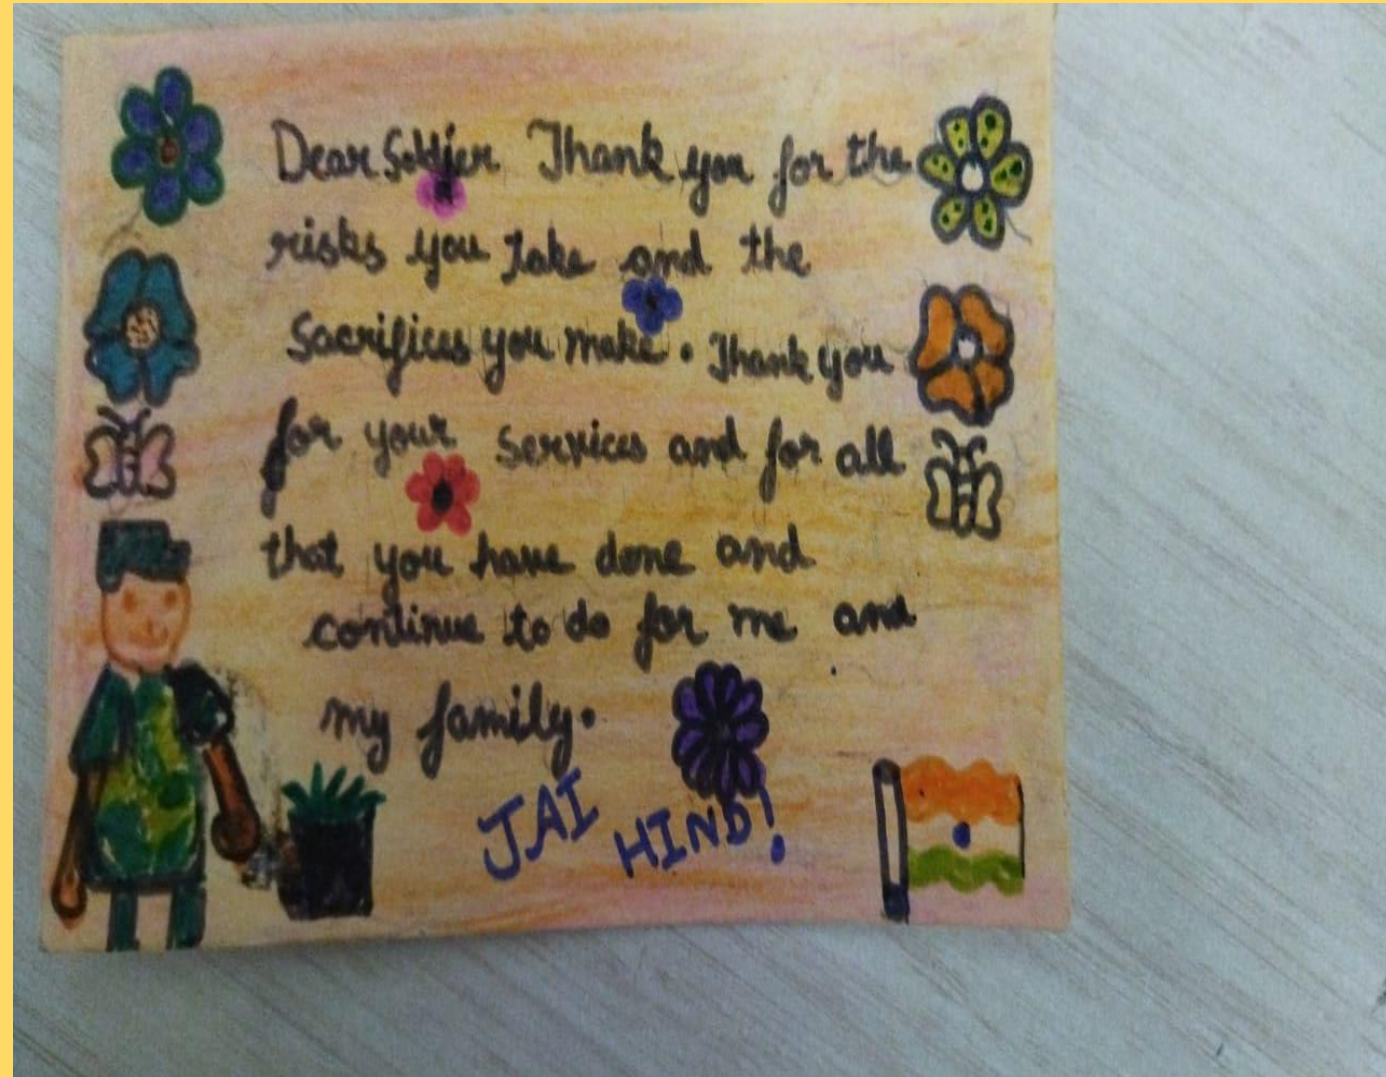 Dear Soldier Thank you for the
risks you take and the
Sacrifices you make. Thank you
for your services and for all
that you have done and
continue to do for me and
my family.
JAI HIND!